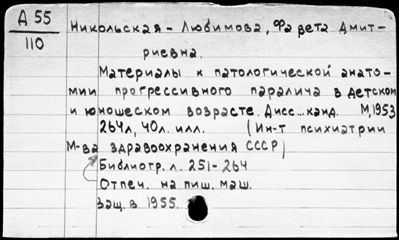 А 55
110
Никольская-Любимова, Фавета Дмит-
риевна.
Материалы к патологической анато-
мии прогрессивного паралича в детском
и юношеском возрасте. Дисс... канд. М, 1953
264л, 40л. илл. (Ин-т психиатрии
М-ва здравоохранения СССР)
Библиогр. л. 251-264
Отпеч. на пиш. маш.
Защ. в 1955.